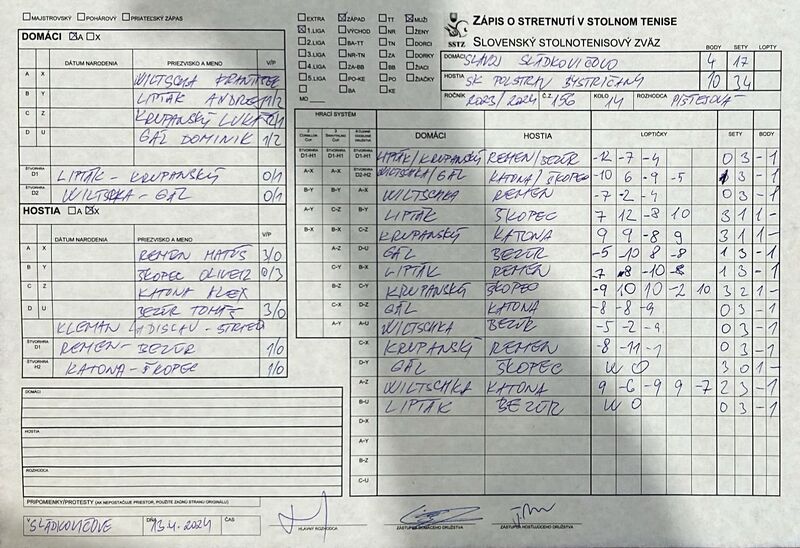 MAJSTROVSKÝ POHÁROVÝ PRIATEĽSKÝ ZÁPAS
DOMÁCI A X
DÁTUM NARODENIA PRIEZVISKO A MENO V/P
A X WILTSCHKA FRANTIŠEK
B Y LIPTÁK ANDREJ 1/2
C Z KRUPANSKÝ LUKÁŠ 2/1
D U GÁL DOMINIK 1/2
ŠTVORHRA D1 LIPTÁK - KRUPANSKÝ 0/1
ŠTVORHRA D2 WILTSCHKA - GÁL 0/1
HOSTIA A X
DÁTUM NARODENIA PRIEZVISKO A MENO V/P
A X REMEN MATÚŠ 3/0
B Y ŠKOPEC OLIVER 0/3
C Z KATONA ALEX
D U BEZÚR TOMÁŠ 3/0
KLEMAN LADISLAV -
ŠTVORHRA D1 REMEN - BEZÚR 1/0
ŠTVORHRA H2 KATONA - ŠKOPEC 1/0
DOMÁCI
HOSTIA
ROZHODCA
PRIPOMIENKY/PROTESTY (AK NEPOSTAČUJE PRIESTOR, POUŽITE ZADNÚ STRANU ORIGINÁLU)
V SLÁDKOVIČOVE DŇA 13.4.2024 ČAS
HLAVNÝ ROZHODCA
ZÁSTUPCA DOMÁCEHO DRUŽSTVA
ZÁSTUPCA HOSŤUJÚCEHO DRUŽSTVA
EXTRA ZÁPAD TT MUŽI
1.LIGA VÝCHOD NR ŽENY
2.LIGA BA-TT TN DORCI
3.LIGA NR-TN ZA DORKY
4.LIGA ZA-BB BB ŽIACI
5.LIGA PO-KE PO ŽIAČKY
BA KE
MO
SSTZ
ZÁPIS O STRETNUTÍ V STOLNOM TENISE
SLOVENSKÝ STOLNOTENISOVÝ ZVÄZ
BODY SETY LOPTY
DOMÁCI SLAVOJ SLÁDKOVIČOVO 4 17
HOSTIA ŠK POLSTRAV BYSTRIČANY 10 34
ROČNÍK 2023/2024 Č.Z. 156 KOLO 14 ROZHODCA
HRACÍ SYSTÉM
DOMÁCI HOSTIA LOPTIČKY SETY BODY
ŠTVORHRA D1-H1 ŠTVORHRA D1-H1 ŠTVORHRA D1-H1 LIPTÁK/KRUPANSKÝ REMEN/BEZÚR -12 -7 -4 0 3 - 1
A-X A-X ŠTVORHRA D2-H2 WILTSCHKA/GÁL KATONA/ŠKOPEC -10 6 -9 -5 1 3 - 1
B-Y B-Y A-X WILTSCHKA REMEN -7 -2 -4 0 3 - 1
A-Y C-Z B-Y LIPTÁK ŠKOPEC 7 12 -8 10 3 1 1 -
B-X B-X C-Z KRUPANSKÝ KATONA 9 9 -8 9 3 1 1 -
A-Z D-U GÁL BEZÚR -5 -10 8 -8 1 3 - 1
C-Y B-X LIPTÁK REMEN 7 -8 -10 -8 1 3 - 1
B-Z C-Y KRUPANSKÝ ŠKOPEC -9 10 10 -2 10 3 2 1 -
C-X D-Z GÁL KATONA -8 -8 -9 0 3 - 1
A-Y A-U WILTSCHKA BEZÚR -5 -2 -9 0 3 - 1
C-X KRUPANSKÝ REMEN -8 -11 -1 0 3 - 1
D-Y GÁL ŠKOPEC W O 3 0 1 -
A-Z WILTSCHKA KATONA 9 -6 -9 9 -7 2 3 - 1
B-U LIPTÁK BEZÚR W O 0 3 - 1
D-X
A-Y
B-Z
C-U